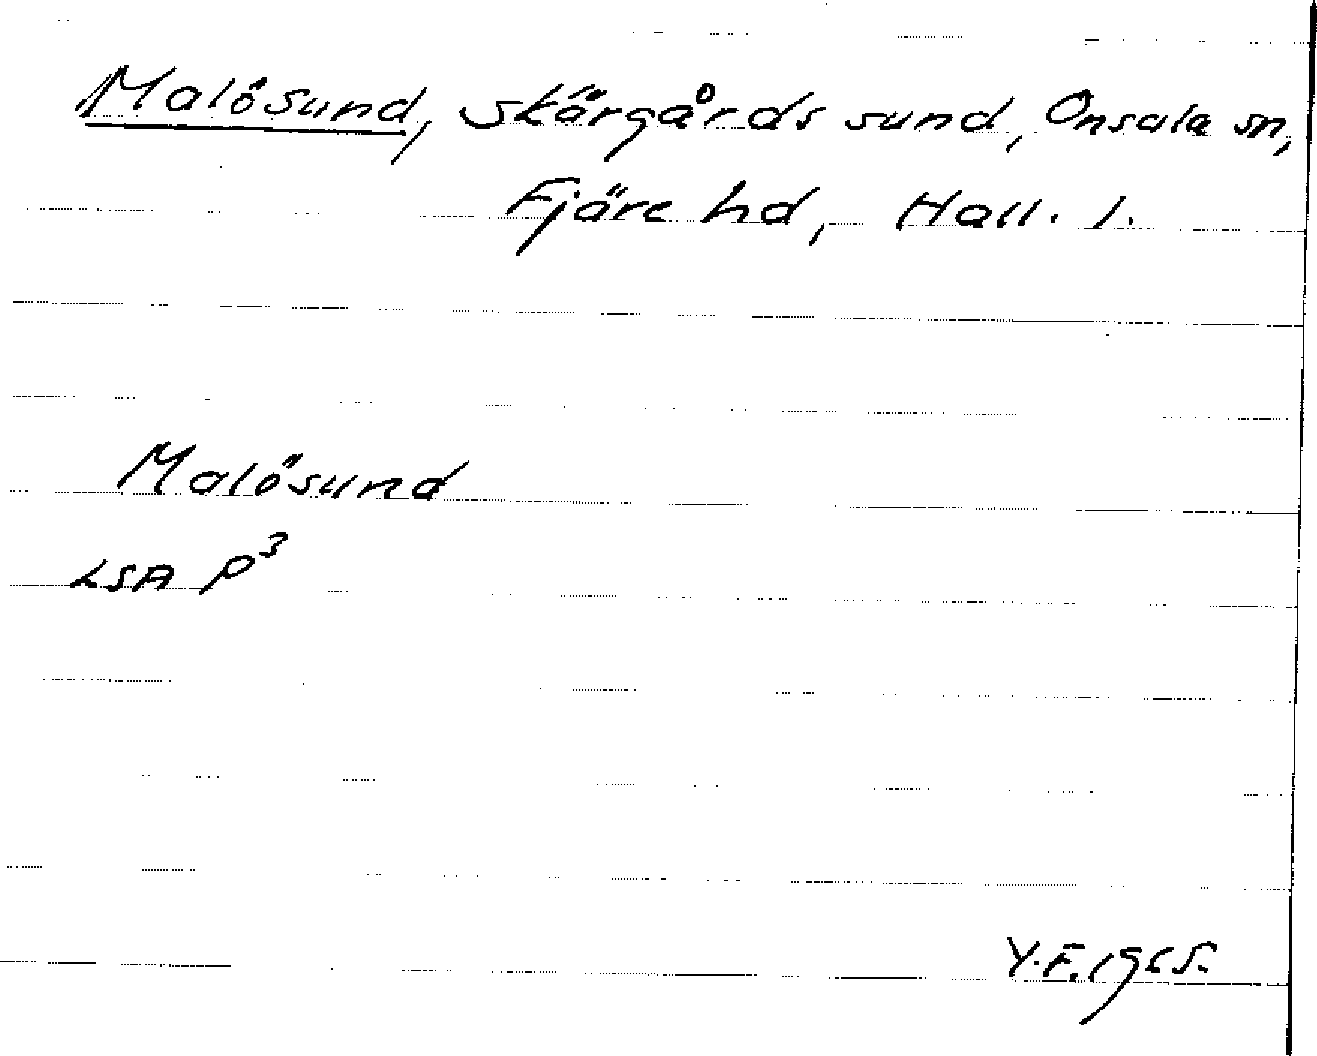 Malösund, skärgårdssund, Onsala sn,
Fjäre hd, Hall. l.
Malösund
LSA P³
Y.F. 1965.